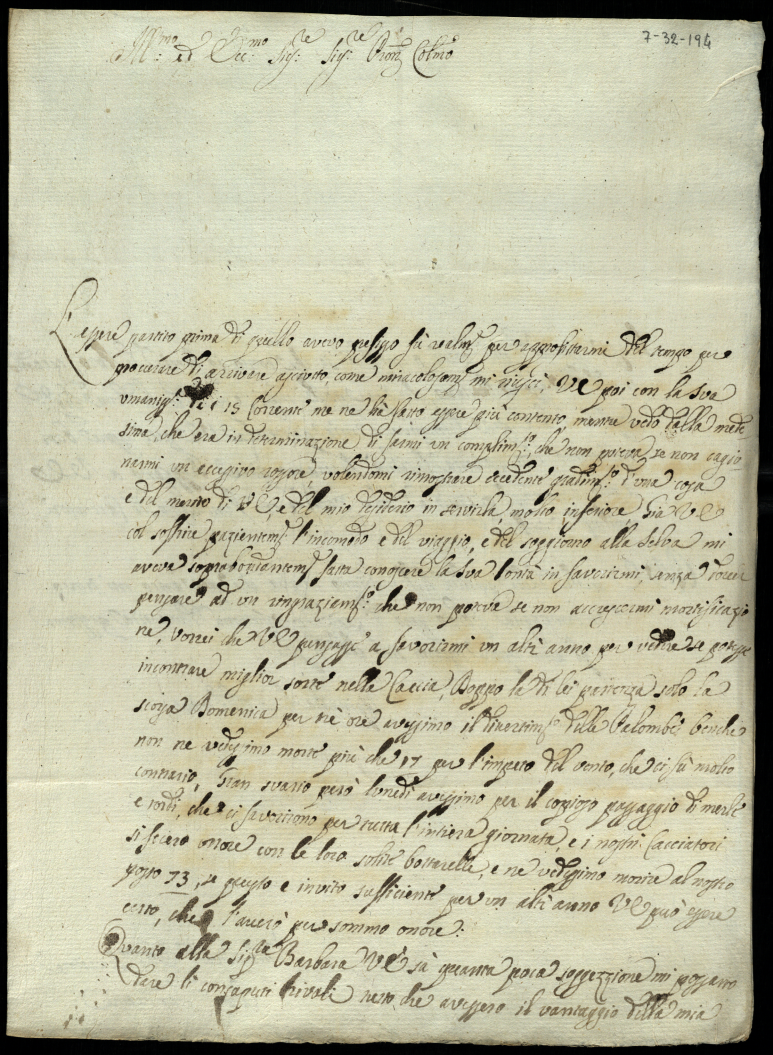 7-32-194
Ill:mo ed Ecc:mo Sig:re Sig:re Pron Colmo
L'essere partito prima di quello avevo prefisso fù realm:te per approfittarmi del tempo per
procurare di arrivare asciutto, come miracolosam:te mi riuscì. VE poi con la sua
umaniss: dei 15 Corrente me ne ha fatto essere più contento, mentre vedo dalla mede
sima, che era in determinazione di farmi un complim:to, che non poteva se non cagio
narmi un eccessivo rossore, volendomi rimostrare eccedente gradim:to d'una cosa
e del merito di VE, e del mio desiderio in servirla, molto inferiore. Già VE
col soffrire pazientem:te l'incomodo e del viaggio, e del soggiorno alla Selva mi
aveva soprabbondantem:te fatta conoscere la sua bontà in favorirmi, senza dover
pensare ad un ringraziam:to che non poteva se non accrescermi mortificazio
ne, vorrei che VE pensasse a favorirmi un altr'anno per vedere se potesse
incontrare miglior sorte nella Caccia, Doppo la di lei partenza solo la
scorsa Domenica per tre ore avessimo il divertim:to delle Palombe, benche
non ne vedessimo morte più che 17 per l'impeto del vento, che ci fù molto
contrario, Gran svario però lunedì avessimo per il copioso passaggio di merli
e tordi, che ci favorirono per tutta l'intiera giornata, e i nostri Cacciatori
si fecero onore con le loro solite bottarelle, e ne vedessimo morti al nostro
posto 73, se questo e invito sufficiente per un altr'anno VE può essere
certo, che l'averò per sommo onore:
Quanto alla Sig:ra Barbara VE sà quanta poca soggezzione mi possano
dare li consaputi Rivali, che avessero il vantaggio della mia